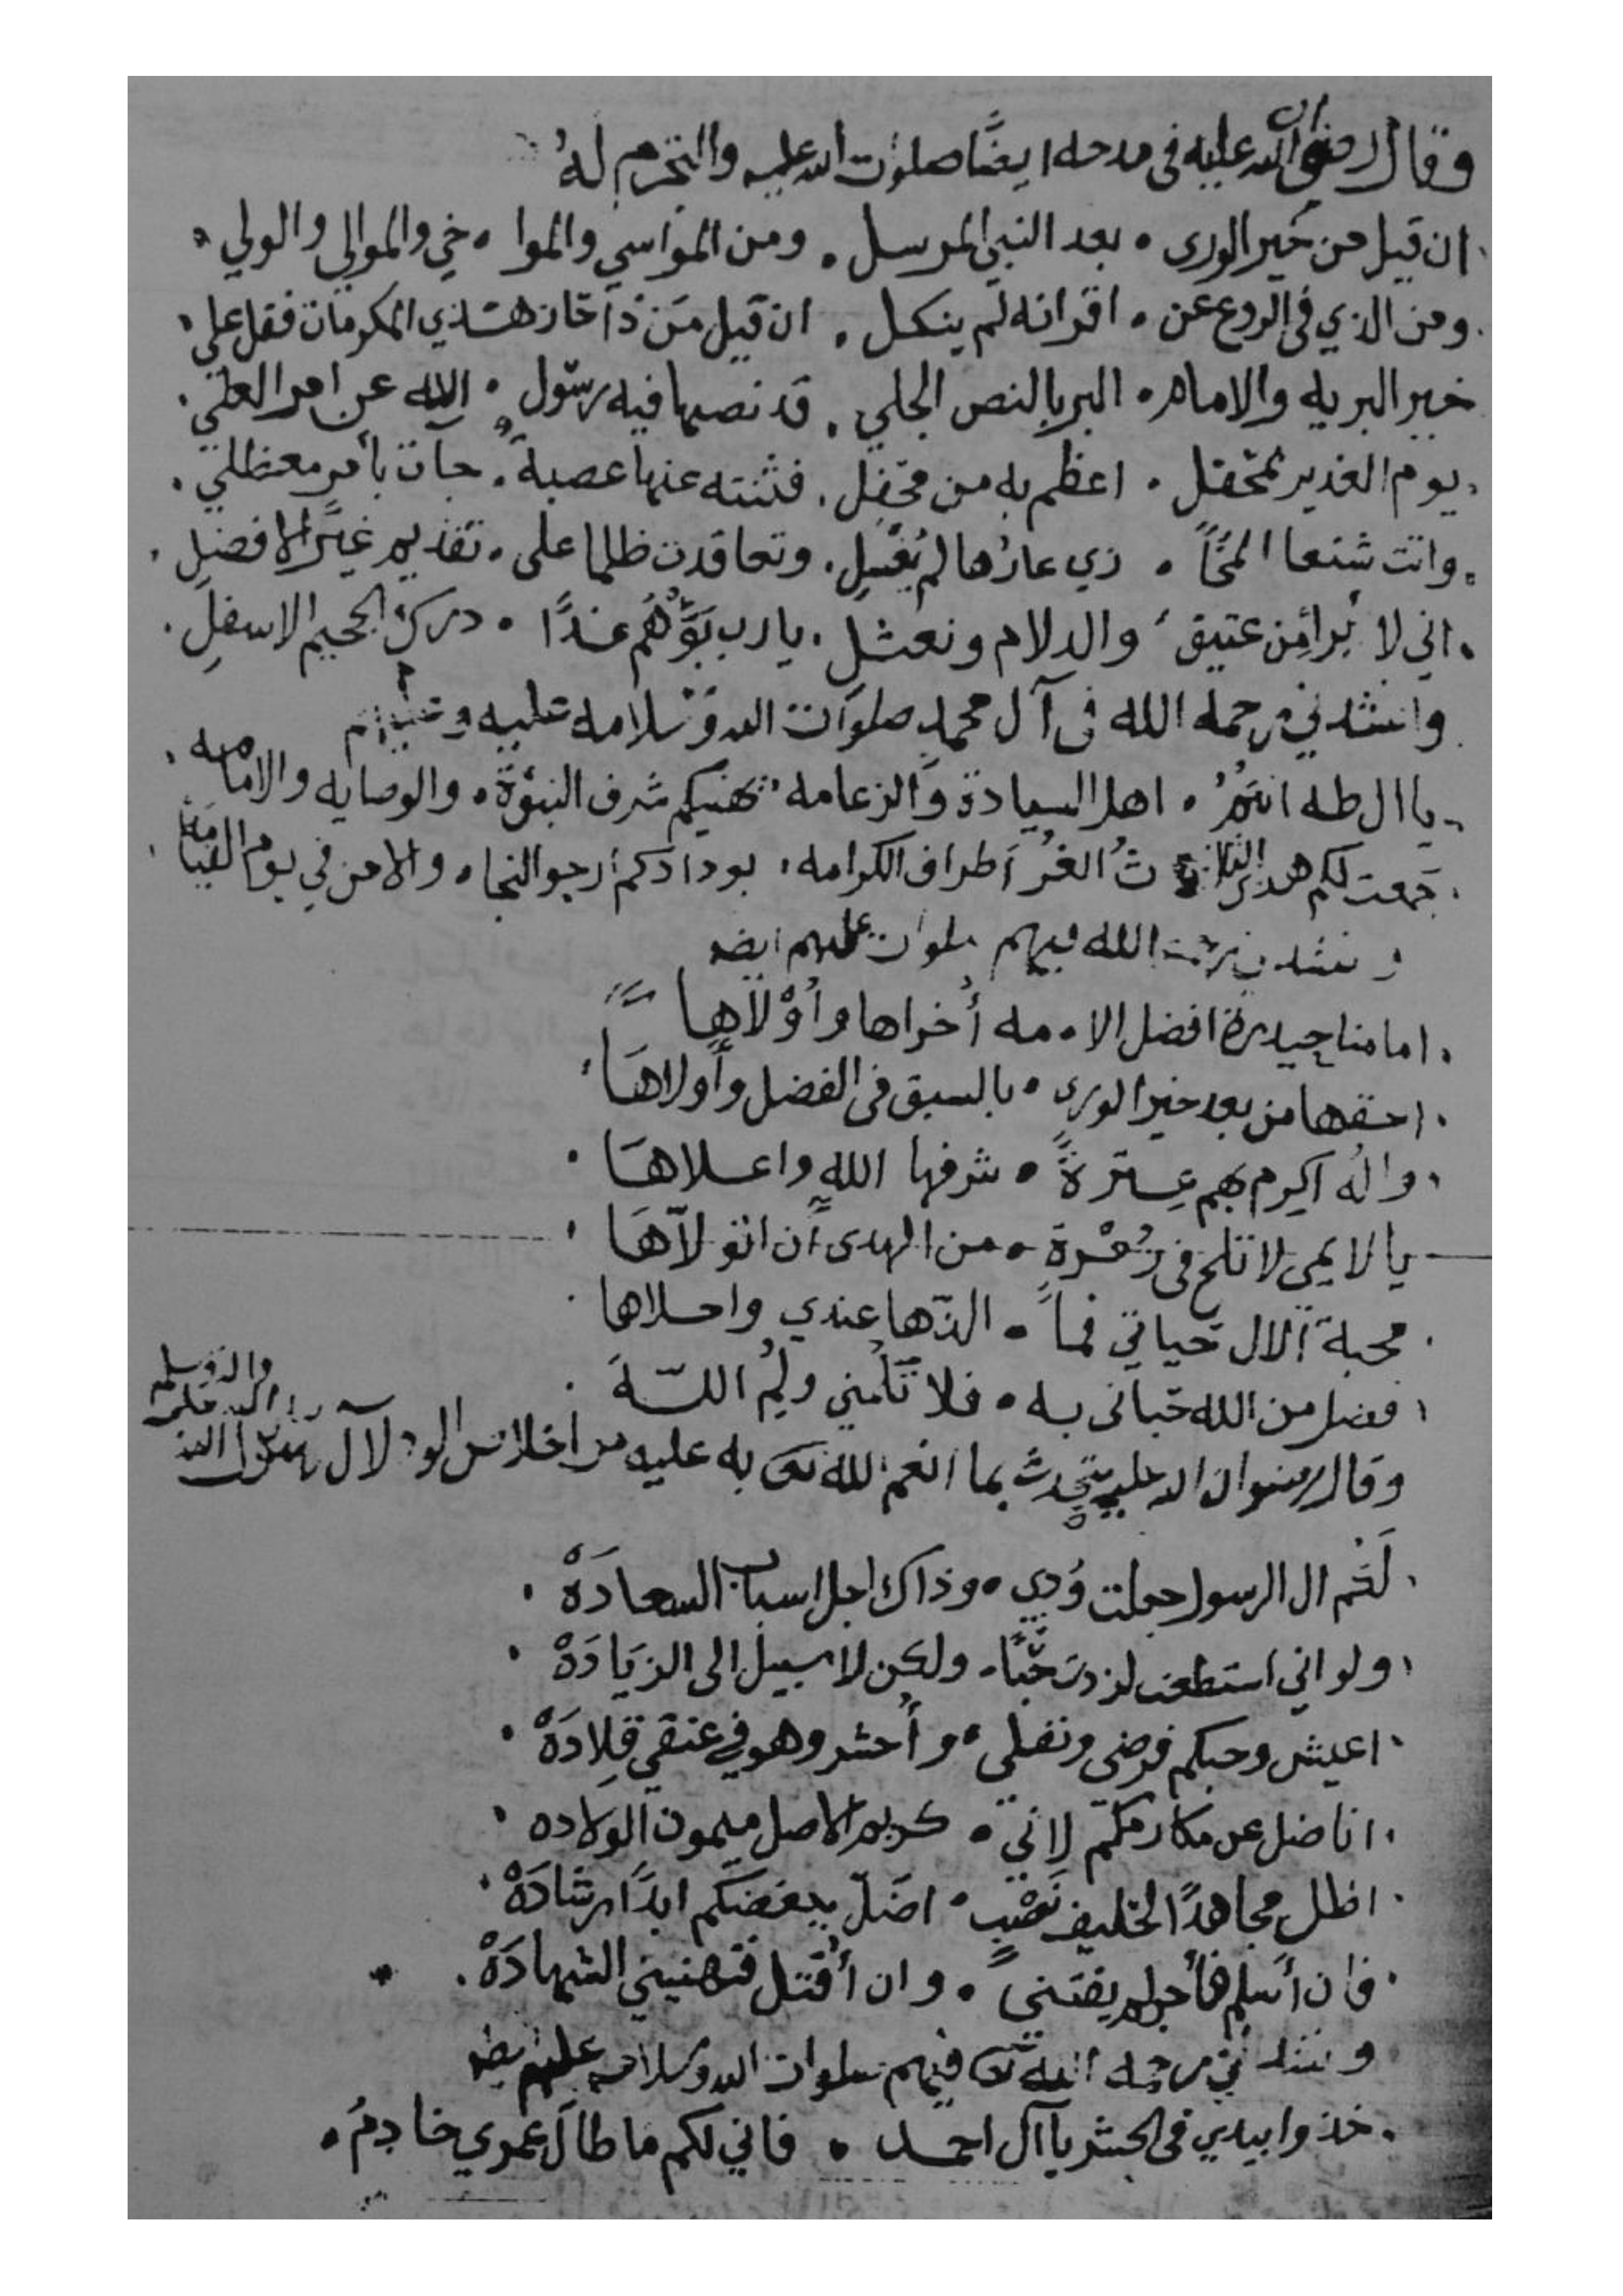 وقال رضوان الله عليه في مدحه ايضًا صلوات الله عليه والتحرم له
ان قيل من خير الورى . بعد النبي المرسل . ومن المواسي والموا . خي والموالي والولي .
ومن الذي في الروع عن . اقرانه لم ينكل . ان قيل مَن ذا حاز هذي المكرمات فقل علي .
خير البريه والامام . البر بالنص الجلي . قد نصها فيه رسول . الاله عن امر العلي .
يوم الغدير بمحفل . اعظم به من محفل . فثنته عنها عصبة . جآت بأمر معظلي .
واتت شنعا المخًا . زي عارُها لم يُغسلِ . وتعاقدت ظلما على . تقديم غيرَ الافضلِ .
اني لابرأ مِن عتيق . والدلام ونعثل . يا رب بَوِّئهُم غدًا . درك الجحيم الاسفلِ .
وانشدني رحمه الله في آل محمد صلوات الله وسلامه عليه وعليهم
يا ال طه انتمُ . اهل السيادة والزعامه . تهنيكم شرف النبوّة . والوصايه والامامه .
جمعت لكم هذي الثلاث الغُر أطراف الكرامه . بودادكم ارجو النجا . والامن في يوم القيامه
الله فيهم صلوات عليهم ايضا
امامنا حيدرة افضل الا . مه أُخراها وأُوْلاها
احقها من بعد خير الورى . بالسبق في الفضل وأَولاهَا
واله اكرم بهم عِترةً . شرفها الله واعلاهَا
يا لايمي لا تلح في زُمْرةٍ . من الهدى أن اتولاهَا
محبة الال حياتي فما . الذّها عندي واحلاها
فضل من الله حباني به . فلا تَلُمني ولُمِ اللّهَ
وقال رضوان الله عليه يتحدث بما انعم الله تعالى به عليه من اخلاص الود لآل رسول الله صلى الله عليه واله وسلم
لكم ال الرسول جعلت وُدي . وذاك اجل اسباب السعادَهْ
ولو اني استطعت لزدت حُبًّا . ولكن لا سبيل الى الزيَادَهْ
اعيش وحبكم فرضي ونفلي . وأُحشر وهو في عنقي قِلادَهْ
اناضل عن مكارمكم لاني . كريم الاصل ميمون الولاده
اظل مجاهدًا لحليف نَصْبٍ . اضَلّ ببغضكم ابدًا رشادَهْ
فان أَسلم فأجر لم يفتني . وان أُقتل فتهنيني الشهادَهْ
وانشدني رحمه الله تعالى فيهم صلوات الله وسلامه عليهم
خذوا بيدي في الحشر يا آل احمد . فاني لكم ما طال عمري خادِمُ